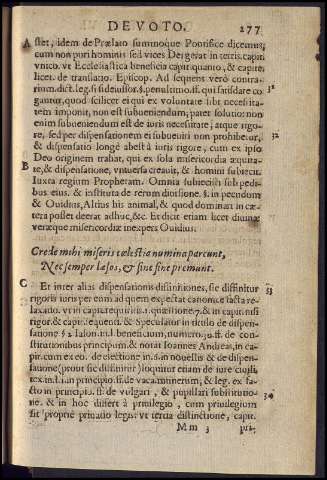 DE VOTO. 277
A stet, idem de Prælato summoque Pontifice dicemus,
cum non puri hominis sed vices Dei gerat in terris. capit.
vnico. vt Ecclesiastica beneficia capit. quanto, & capit.
licet. de translatio. Episcop. Ad sequens verò contra-
rium. dict. leg. si fideiussor. §. penultimo. ff. qui satisdare co 31
gantur, quod scilicet ei qui ex voluntate sibi necessita-
tem imponit, non est subueniendum; patet solutio: non
enim subueniendum est de iuris necessitate, atque rigo-
re, sed per dispensationem ei subueniri non prohibetur, 32
& dispensatio longè abest à iuris rigore, cum ex ipso
Deo originem trahat, qui ex sola misericordia æquita-
B te, & dispensatione, vniuersa creauit, & homini subiecit.
Iuxta regium Prophetam. Omnia subiecisti sub pedi-
bus eius. & instituta de rerum diuisione. §. in pecudum
& Ouidius, Altius his animal, & quod dominari in cæ-
tera posset deerat adhuc, &c. Et dicit etiam licet diuinæ
veræque misericordiæ inexpers Ouidius.
Crede mihi miseris cælestia numina parcunt,
Nec semper læsos, & sine fine premunt.
C Et inter alias dispensationis diffinitiones, sic diffinitur 33
rigoris iuris per eum ad quem expectat canonice facta re-
laxatio. vt in capit. requiritis. 1. quæstione. 7. & in capit. nisi
rigor. & capit. sequenti. & Speculator in titulo de dispen-
satione §. 1. Iason. in l. beneficium, numero. 19. ff. de con-
stitutionibus principum. & notat Ioannes Andreas, in ca-
pit. cum ex eo. de electione in. 6. in nouellis & de dispen-
satione (prout sic diffinitur) loquitur etiam de iure ciuili.
tex. in. l. 1. in principio. ff. de vaca. munerum; & leg. ex fa-
cto in principio. ff. de vulgari, & pupillari substitutio- 34
ne. & in hoc differt à priuilegio, cum priuilegium
sit propriè priuatio legis. vt tertia distinctione, capit.
M m 3 pri-